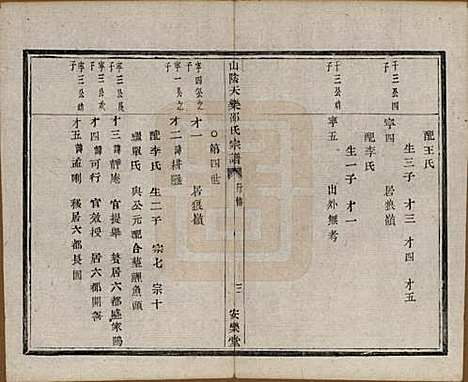 配王氏
生三子 才三 才四 才五
千三公四子
寧四 居狼嶺
配李氏
生一子 才一
千三公幼子
寧五 山外無考
山陰天樂邵氏宗譜
行傳
三
安樂堂
第四世
寧四公之子
才一 居狼嶺
寧一公之子
才二
配李氏 生二子 宗七 宗十
繼單氏 與公元配合葬鯉魚頭
寧三公長子
才三 諱靜庵 官提舉 贅居六都盛家隖
寧三公次子
才四 諱可行 官效授 居六都開善
寧三公幼子
才五 諱孟剛 移居六都長園